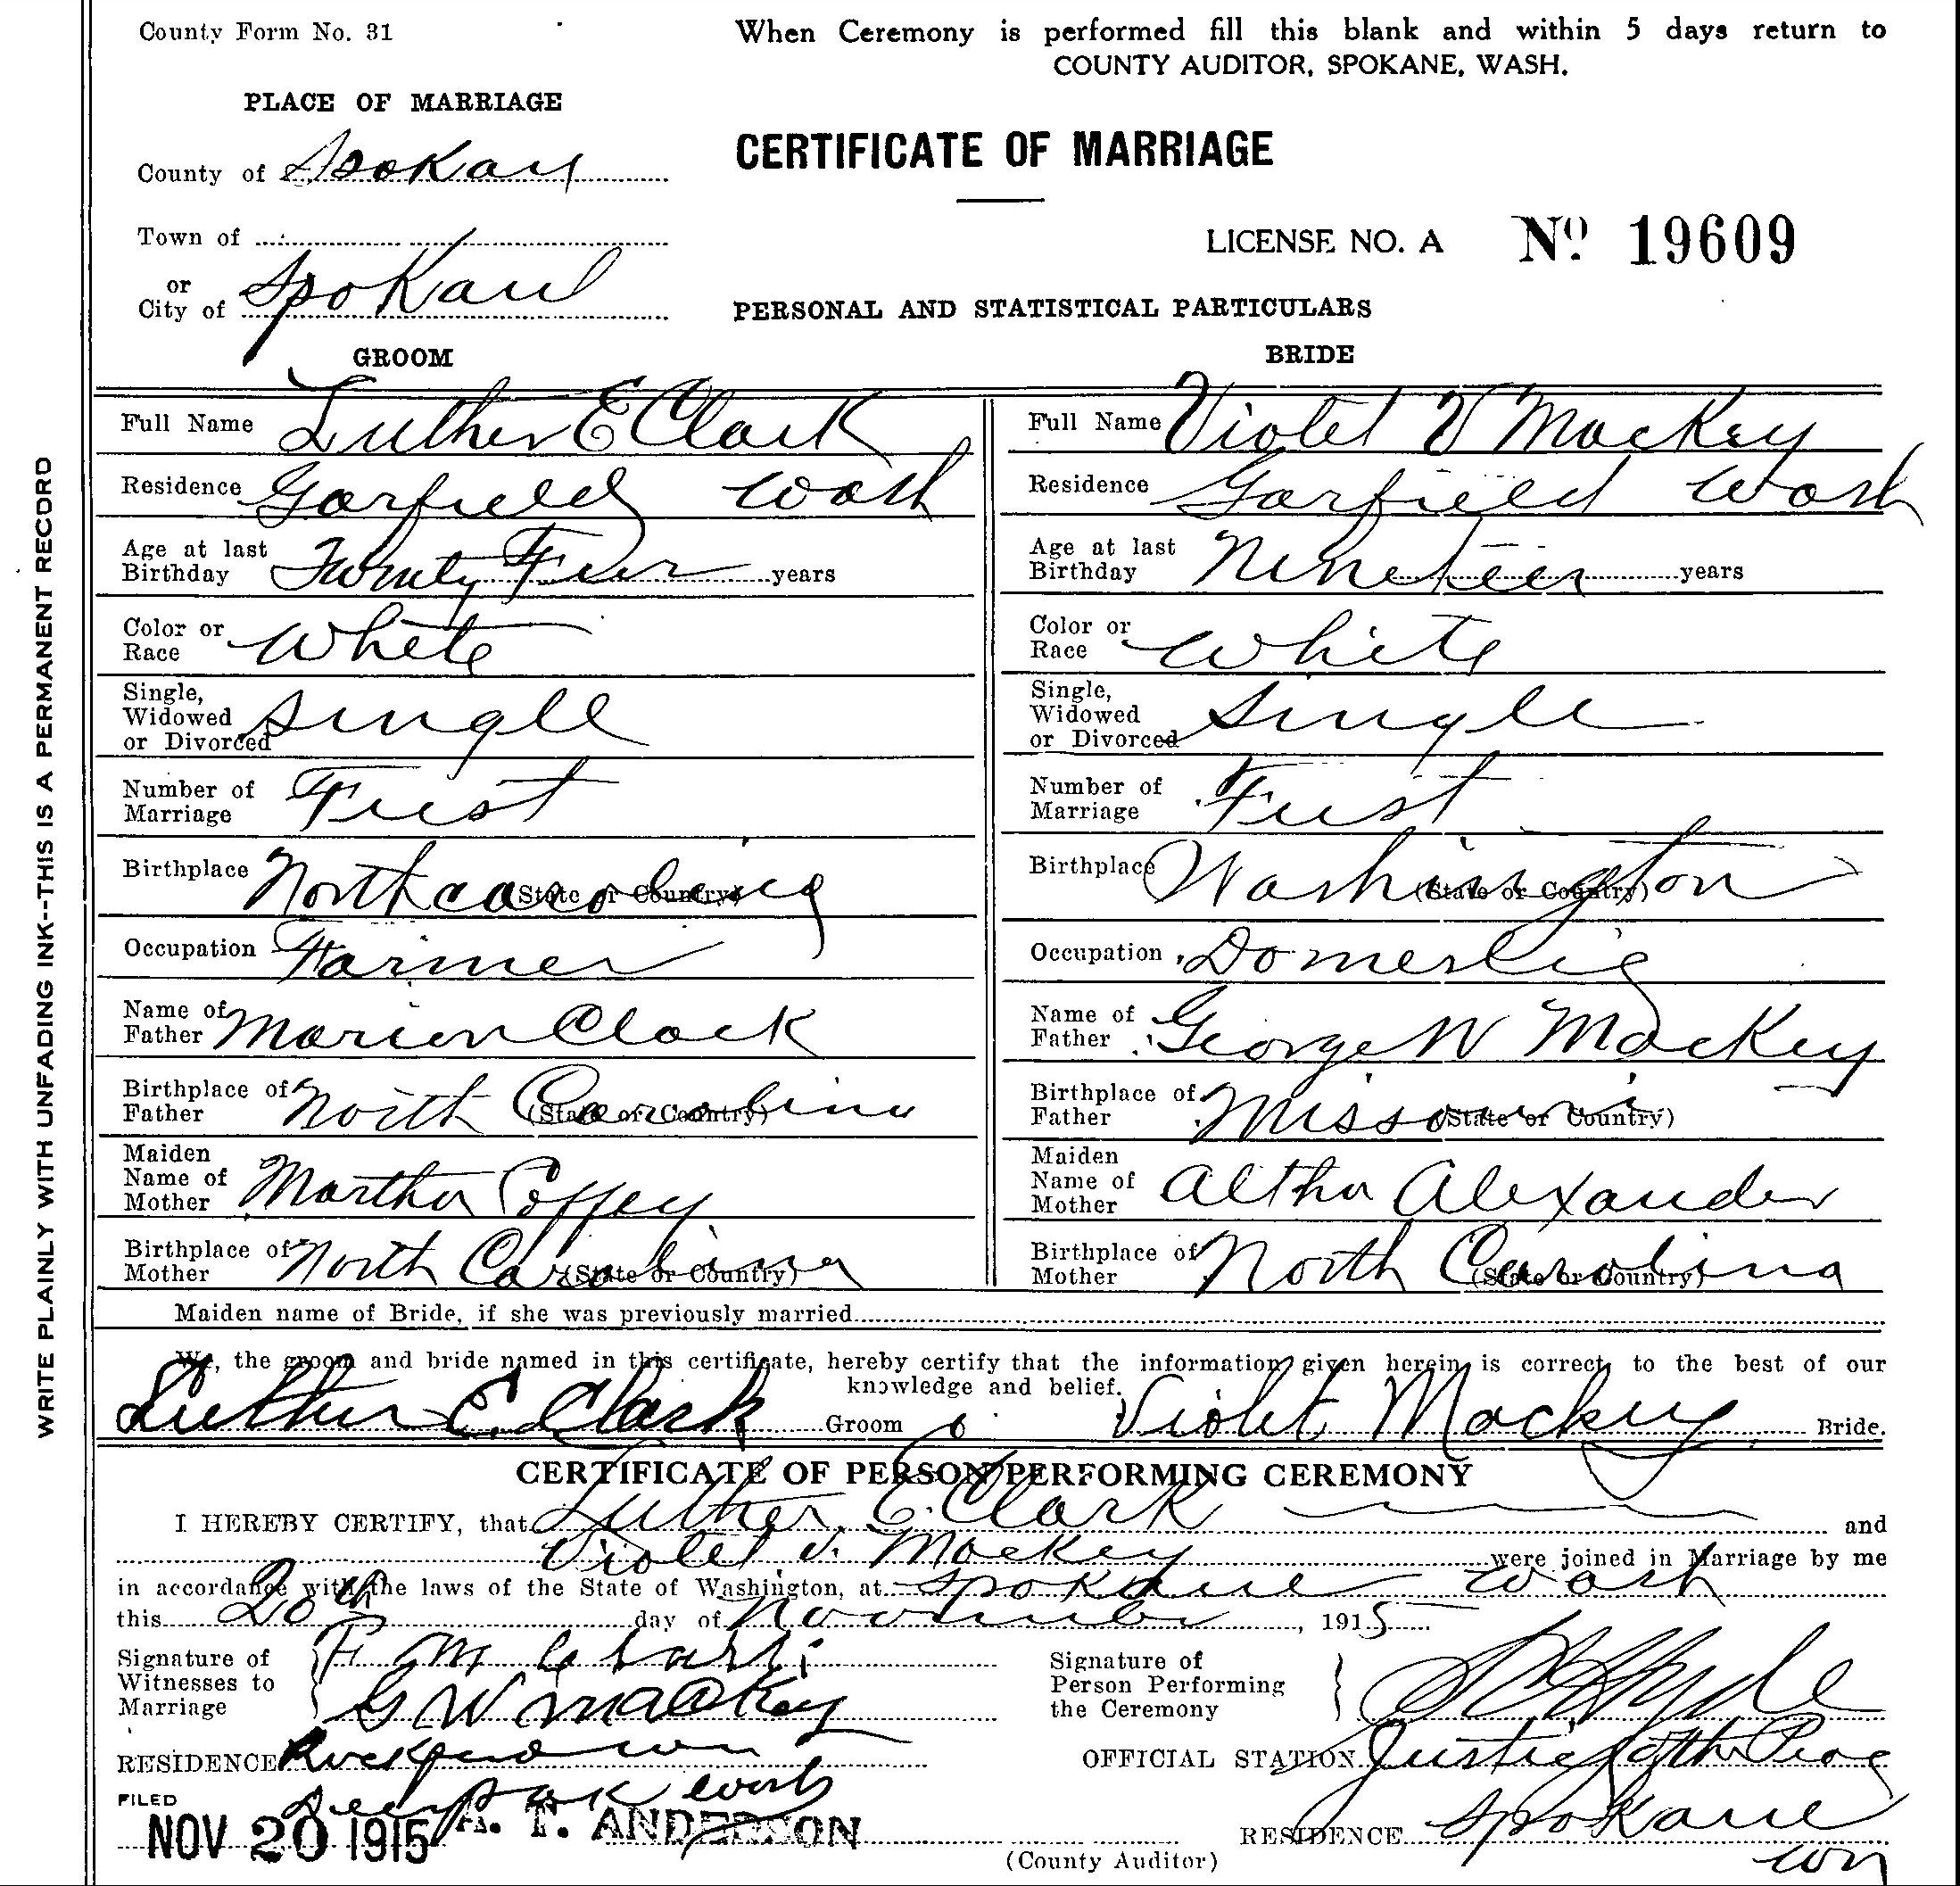 County Form No. 31
When Ceremony is performed fill this blank and within 5 days return to
COUNTY AUDITOR, SPOKANE, WASH.
PLACE OF MARRIAGE
CERTIFICATE OF MARRIAGE
County of Spokan
Town of
or
City of Spokane
LICENSE NO. A No. 19609
PERSONAL AND STATISTICAL PARTICULARS
GROOM
Full Name Luther E Clark
Residence Garfield Wash
Age at last
Birthday Twenty years
Color or
Race White
Single,
Widowed
or Divorced Single
Number of
Marriage First
Birthplace North carolina
(State or Country)
Occupation Farmer
Name of
Father Marion Clark
Birthplace of
Father North Carolina
(State or Country)
Maiden
Name of
Mother Martha Coffey
Birthplace of
Mother North Carolina
(State or Country)
BRIDE
Full Name Violet V Mackey
Residence Garfield Wash
Age at last
Birthday Nineteen years
Color or
Race White
Single,
Widowed
or Divorced Single
Number of
Marriage First
Birthplace Washington
(State or Country)
Occupation Domestic
Name of
Father George W Mackey
Birthplace of
Father Missouri
(State or Country)
Maiden
Name of
Mother Altha Alexander
Birthplace of
Mother North Carolina
(State or Country)
Maiden name of Bride, if she was previously married
We, the groom and bride named in this certificate, hereby certify that the information given herein is correct, to the best of our
knowledge and belief.
Luther E. Clark Groom Violet Mackey Bride.
CERTIFICATE OF PERSON PERFORMING CEREMONY
I HEREBY CERTIFY, that Luther E. Clark and
Violet V. Mackey were joined in Marriage by me
in accordance with the laws of the State of Washington, at Spokane Wash
this 20th day of November, 1915
Signature of
Witnesses to
Marriage
F M
G W Mackey
RESIDENCE
Wash
FILED
NOV 20 1915 A. T. ANDERSON
(County Auditor)
Signature of
Person Performing
the Ceremony
Hyde
OFFICIAL STATION Justice of the Peace
RESIDENCE Spokane
Wn
WRITE PLAINLY WITH UNFADING INK--THIS IS A PERMANENT RECORD